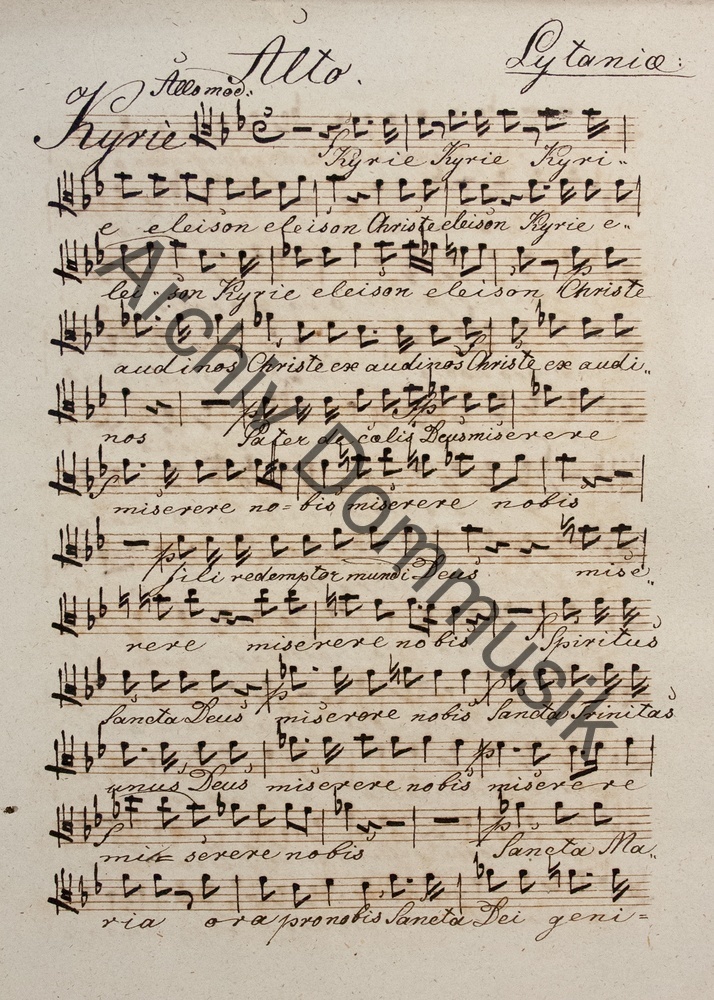 Alto.
Lytaniæ:
Allo mod:
Kyrie
Kyrie Kyrie Kyri"
e eleison eleison Christe eleison Kyrie e"
lei"son Kyrie eleison eleison Christe
audi nos Christe ex audi nos Christe ex audi"
nos Pater de cœlis Deus miserere
miserere no=bis miserere nobis
fili redemptor mundi Deus mise"
rere miserere nobis Spiritus
Sancta Deus miserore nobis Sancta Trinitas
unus Deus miserere nobis miserere
mi= serere nobis Sancta Ma"
ria ora pro nobis Sancta Dei geni=
Archiv Dommusik